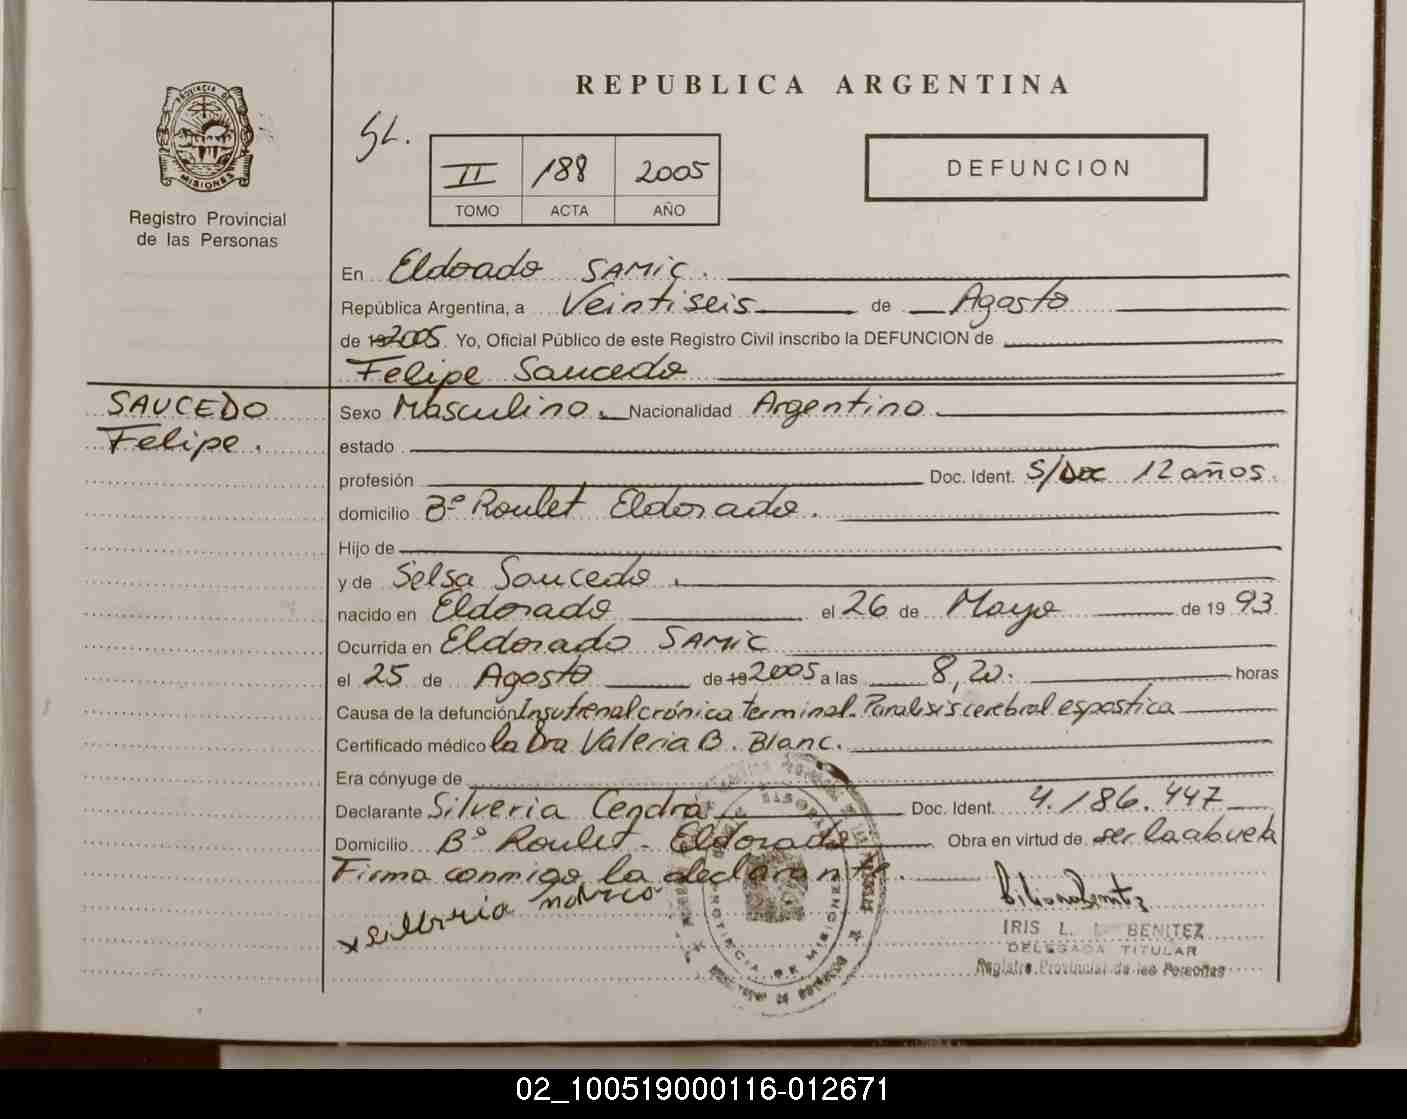 REPUBLICA ARGENTINA
PROVINCIA DE
MISIONES
Registro Provincial
de las Personas
SL.
II 188 2005
TOMO ACTA AÑO
DEFUNCION
En Eldorado SAMIC.
República Argentina, a Veintiseis de Agosto
de 192005. Yo, Oficial Público de este Registro Civil inscribo la DEFUNCION de
Felipe Saucedo
SAUCEDO
Felipe.
Sexo Masculino. Nacionalidad Argentino
estado
profesión Doc. Ident. S/Doc 12 años.
domicilio Bº Roulet Eldorado.
Hijo de
y de Selsa Saucedo.
nacido en Eldorado el 26 de Mayo de 19 93
Ocurrida en Eldorado SAMIC
el 25 de Agosto de 192005 a las 8,20. horas
Causa de la defunción Insuf renal crónica terminal. Paralisis cerebral espastica
Certificado médico la Dra Valeria B. Blanc.
Era cónyuge de
Declarante Silveria Cendra Doc. Ident. 4.186.447
Domicilio Bº Roulet - Eldorado Obra en virtud de ser la abuela
Firma conmigo la declarante.
IRIS L. BENITEZ
DELEGADA TITULAR
Registro Provincial de las Personas
PROVINCIA DE MISIONES
02_100519000116-012671